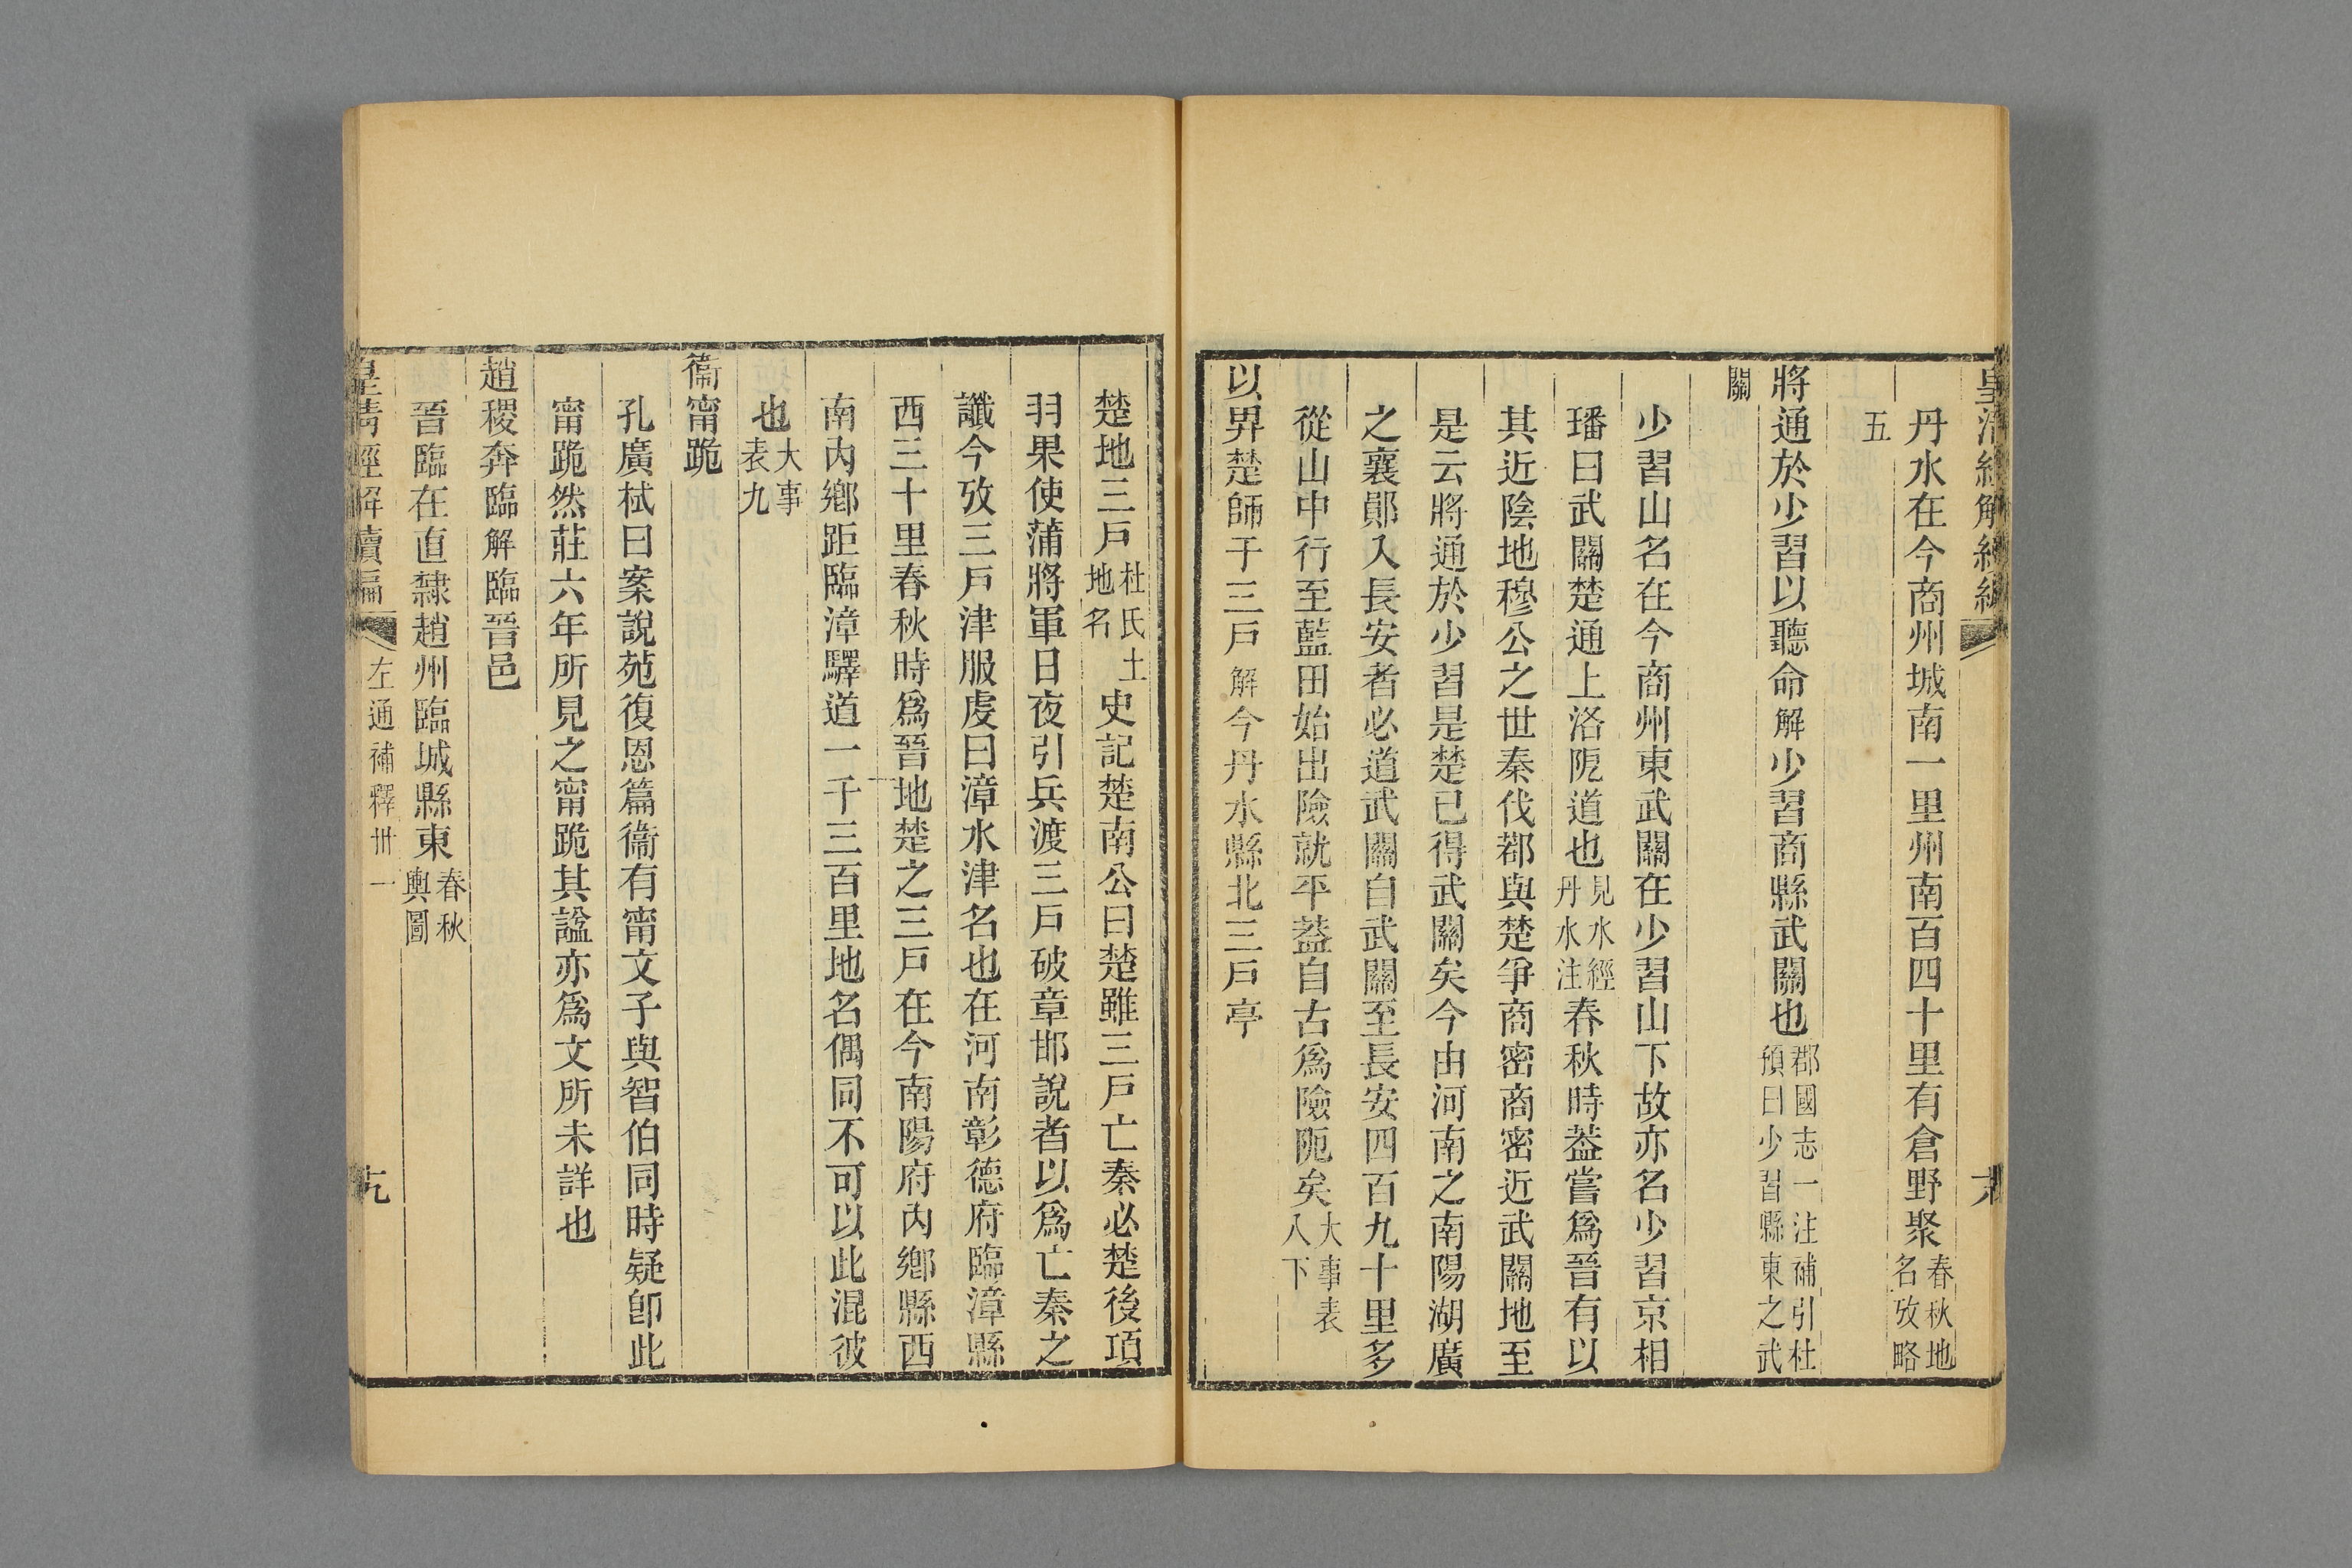 丹水在今商州城南一里州南百四十里有倉野聚春秋地名攷略
五
將通於少習以聽命解少習商縣武關也郡國志一注補引杜預曰少習縣東之武
關
少習山名在今商州東武關在少習山下故亦名少習京相
璠曰武關楚通上洛阨道也見水經丹水注春秋時葢嘗爲晉有以
其近陰地穆公之世秦伐鄀與楚爭商密商密近武關地至
是云將通於少習是楚已得武關矣今由河南之南陽湖廣
之襄鄖入長安者必道武關自武關至長安四百九十里多
從山中行至藍田始出險就平葢自古爲險阨矣大事表八下
以畀楚師于三戸解今丹水縣北三戸亭
楚地三戸杜氏土地名史記楚南公曰楚雖三戸亡秦必楚後項
羽果使蒲將軍日夜引兵渡三戸破章邯說者以爲亡秦之
讖今攷三戸津服虔曰漳水津名也在河南彰德府臨漳縣
西三十里春秋時爲晉地楚之三戸在今南陽府內鄉縣西
南內鄉距臨漳驛道一千三百里地名偶同不可以此混彼
也大事表九
衞甯跪
孔廣栻曰案說苑復恩篇衞有甯文子與智伯同時疑卽此
甯跪然莊六年所見之甯跪其諡亦爲文所未詳也
趙稷奔臨解臨晉邑
晉臨在直隸趙州臨城縣東春秋輿圖
皇淸經解續編 左通補釋卅一